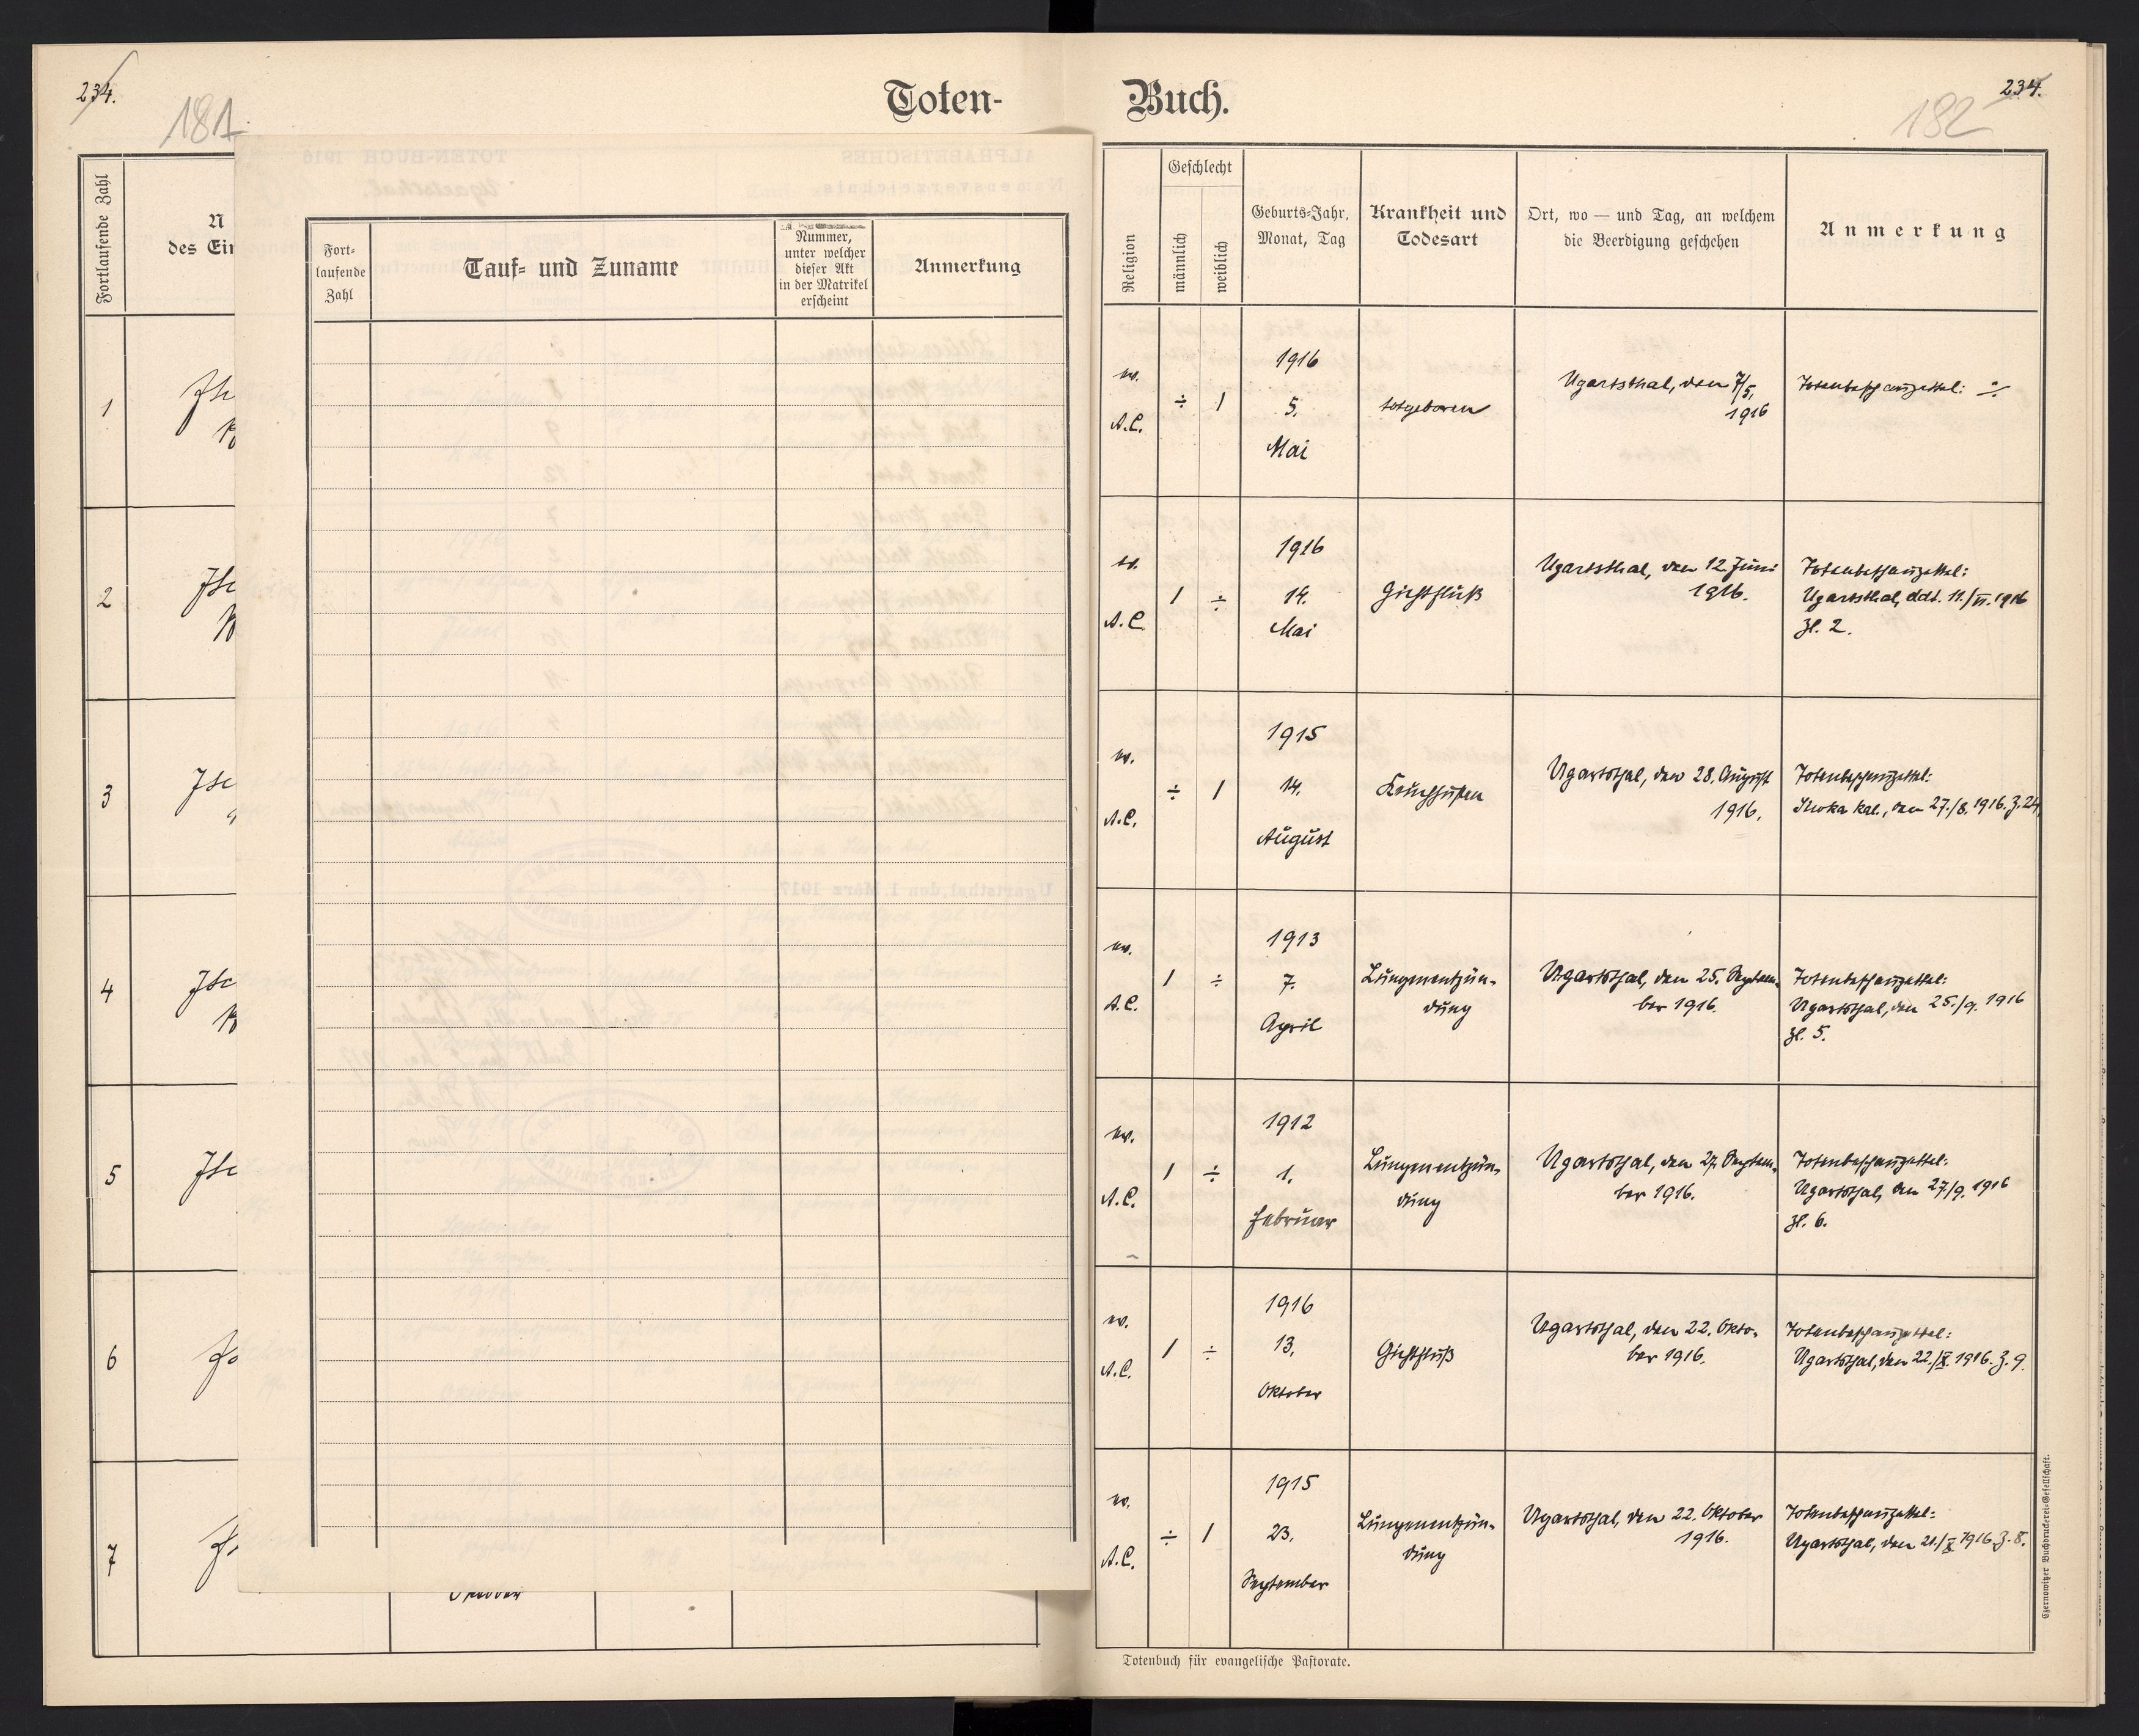 234.
181.
Toten-
Buch.
234.
182
Fortlaufende Zahl
N
des Ein
1
2
3
4
5
6
7
Fort-
laufende
Zahl
Tauf- und Zuname
Nummer,
unter welcher
dieser Akt
in der Matrikel
erscheint
Anmerkung
Religion
Geschlecht
männlich
weiblich
Geburts-Jahr,
Monat, Tag
Krankheit und
Todesart
Ort, wo — und Tag, an welchem
die Beerdigung geschehen
Anmerkung
ev.
A.C.
÷
1
1916
5.
Mai
totgeboren
Ugartsthal, den 7/5.
1916
Totenbeschauzettel: ÷
ev.
A.C.
1
÷
1916
14.
Mai
Gichtfluß
Ugartsthal, den 12. Juni
1916.
Totenbeschauzettel:
Ugartsthal, ddt. 11./VI. 1916
Zl. 2.
ev.
A.C.
÷
1
1915
14.
August
Keuchhusten
Ugartsthal, den 28. August
1916.
Totenbeschauzettel:
kal., den 27./8. 1916. Z. 24
ev.
A.C.
1
÷
1913
7.
April
Lungenentzün-
dung
Ugartsthal, den 25. Septem-
ber 1916.
Totenbeschauzettel:
Ugartsthal, den 25./9. 1916
Zl. 5.
ev.
A.C.
1
÷
1912
1.
Februar
Lungenentzün-
dung
Ugartsthal, den 27. Septem-
ber 1916.
Totenbeschauzettel:
Ugartsthal, den 27/9. 1916
Zl. 6.
ev.
A.C.
1
÷
1916
13.
Oktober
Gichtfluß
Ugartsthal, den 22. Okto-
ber 1916.
Totenbeschauzettel:
Ugartsthal, den 22./X. 1916. Z. 9.
ev.
A.C.
÷
1
1915
23.
September
Lungenentzün-
dung
Ugartsthal, den 22. Oktober
1916.
Totenbeschauzettel:
Ugartsthal, den 21./X. 1916. Z. 8.
Totenbuch für evangelische Pastorate.
Czernowitzer Buchdruckerei-Gesellschaft.